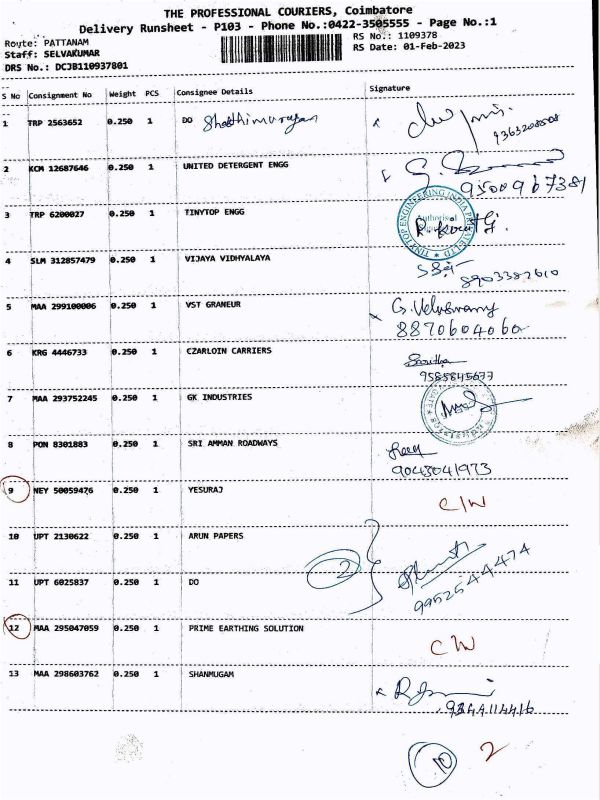 THE PROFESSIONAL COURIERS, Coimbatore
Delivery Runsheet - P103 - Phone No.:0422-3505555 - Page No.:1
Route: PATTANAM RS No.: 1109378
Staff: SELVAKUMAR RS Date: 01-Feb-2023
DRS No.: DCJB110937801
S No Consignment No Weight PCS Consignee Details Signature
1 TRP 2563652 0.250 1 DO
2 KCM 12687646 0.250 1 UNITED DETERGENT ENGG
9500967381
3 TRP 6200027 0.250 1 TINYTOP ENGG
4 SLM 312857479 0.250 1 VIJAYA VIDHYALAYA
8903382610
5 MAA 299100006 0.250 1 VST GRANEUR G. Veluswamy
8870604060
6 KRG 4446733 0.250 1 CZARLOIN CARRIERS
9585845677
7 MAA 293752245 0.250 1 GK INDUSTRIES
8 PON 8301883 0.250 1 SRI AMMAN ROADWAYS
9043041973
9 NEY 50059476 0.250 1 YESURAJ C/W
10 UPT 2130622 0.250 1 ARUN PAPERS
2
11 UPT 6025837 0.250 1 DO 9952544474
12 MAA 295047059 0.250 1 PRIME EARTHING SOLUTION C/W
13 MAA 298603762 0.250 1 SHANMUGAM
9344114416
10 2